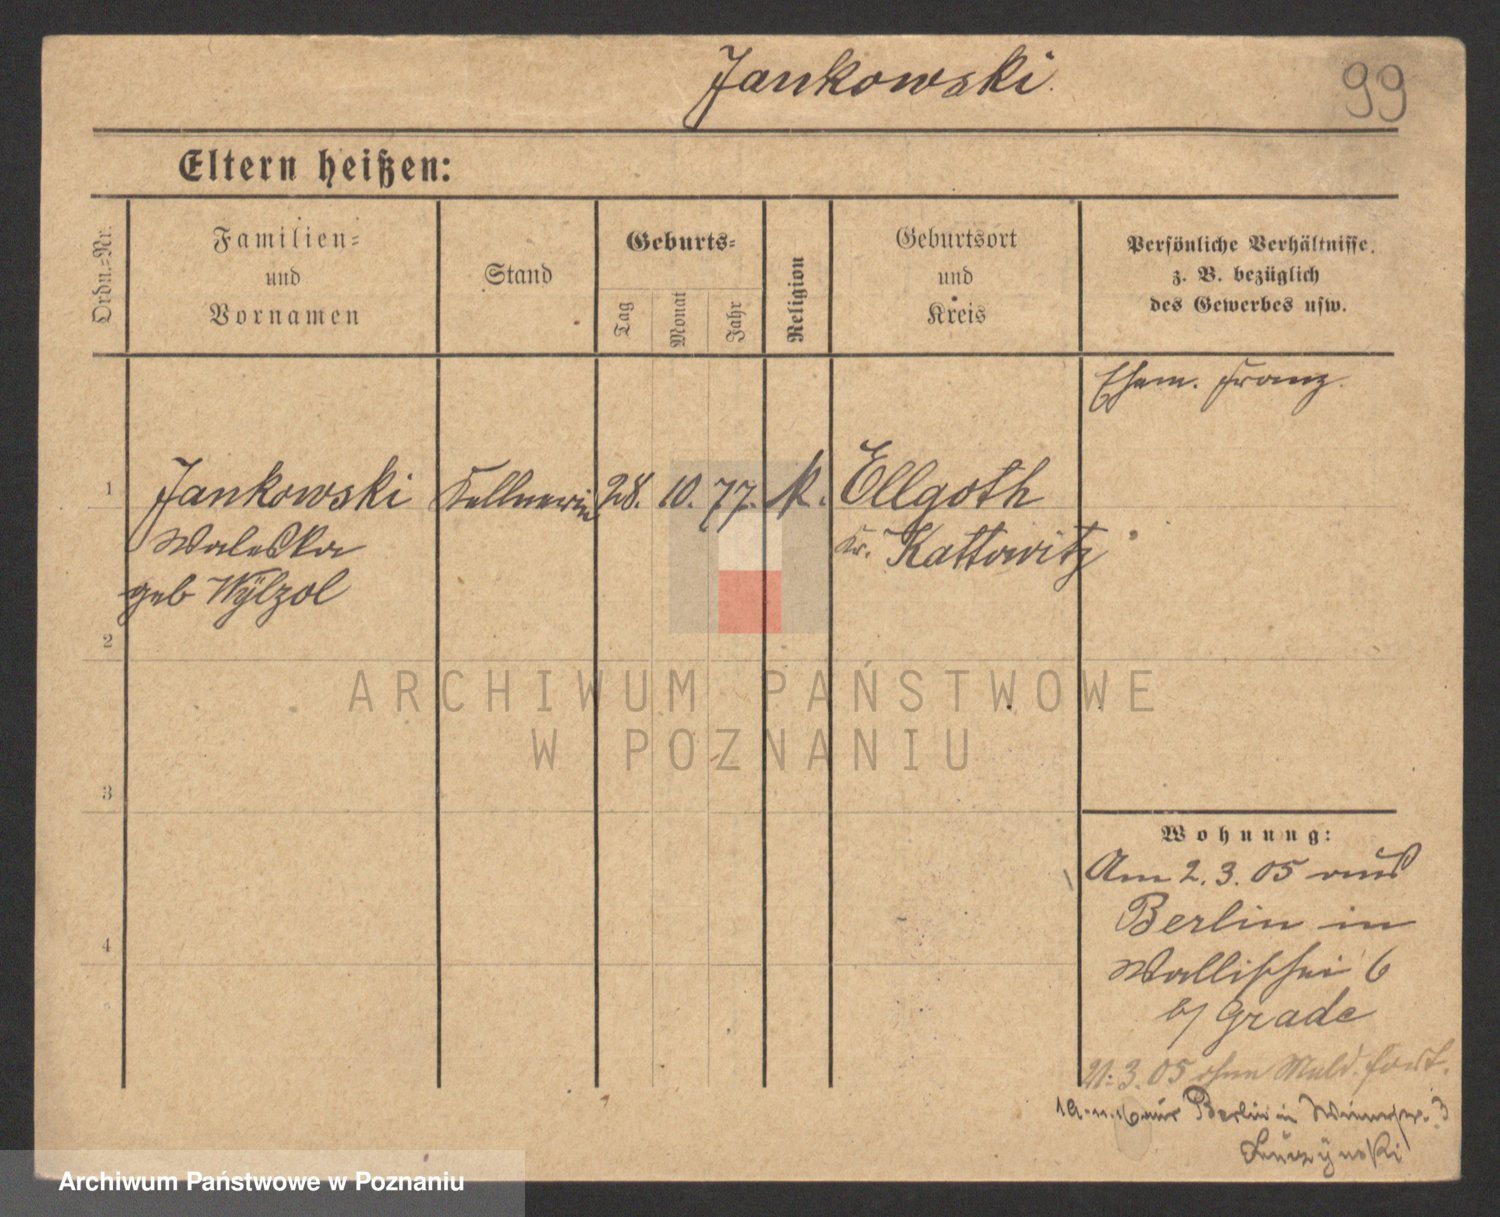 Jankowski.
99
Eltern heißen:
Ordn.-Nr.
Familien-
und
Vornamen
Stand
Geburts-
Tag
Monat
Jahr
Religion
Geburtsort
und
Kreis
Persönliche Verhältnisse
z. B. bezüglich
des Gewerbes usw.
Ehem. Franz.
1
Jankowski
Kellnerin
28. 10. 77. k.
Ellgoth
Waleska
Kr. Kattowitz
geb Wÿlzol
2
ARCHIWUM PAŃSTWOWE
W POZNANIU
3
Wohnung:
Am 2. 3. 05 aus
4
Berlin in
Wallischei 6
b/ Grade
21. 3. 05 ohne Meld. fort.
aus Berlin in
3
Archiwum Państwowe w Poznaniu